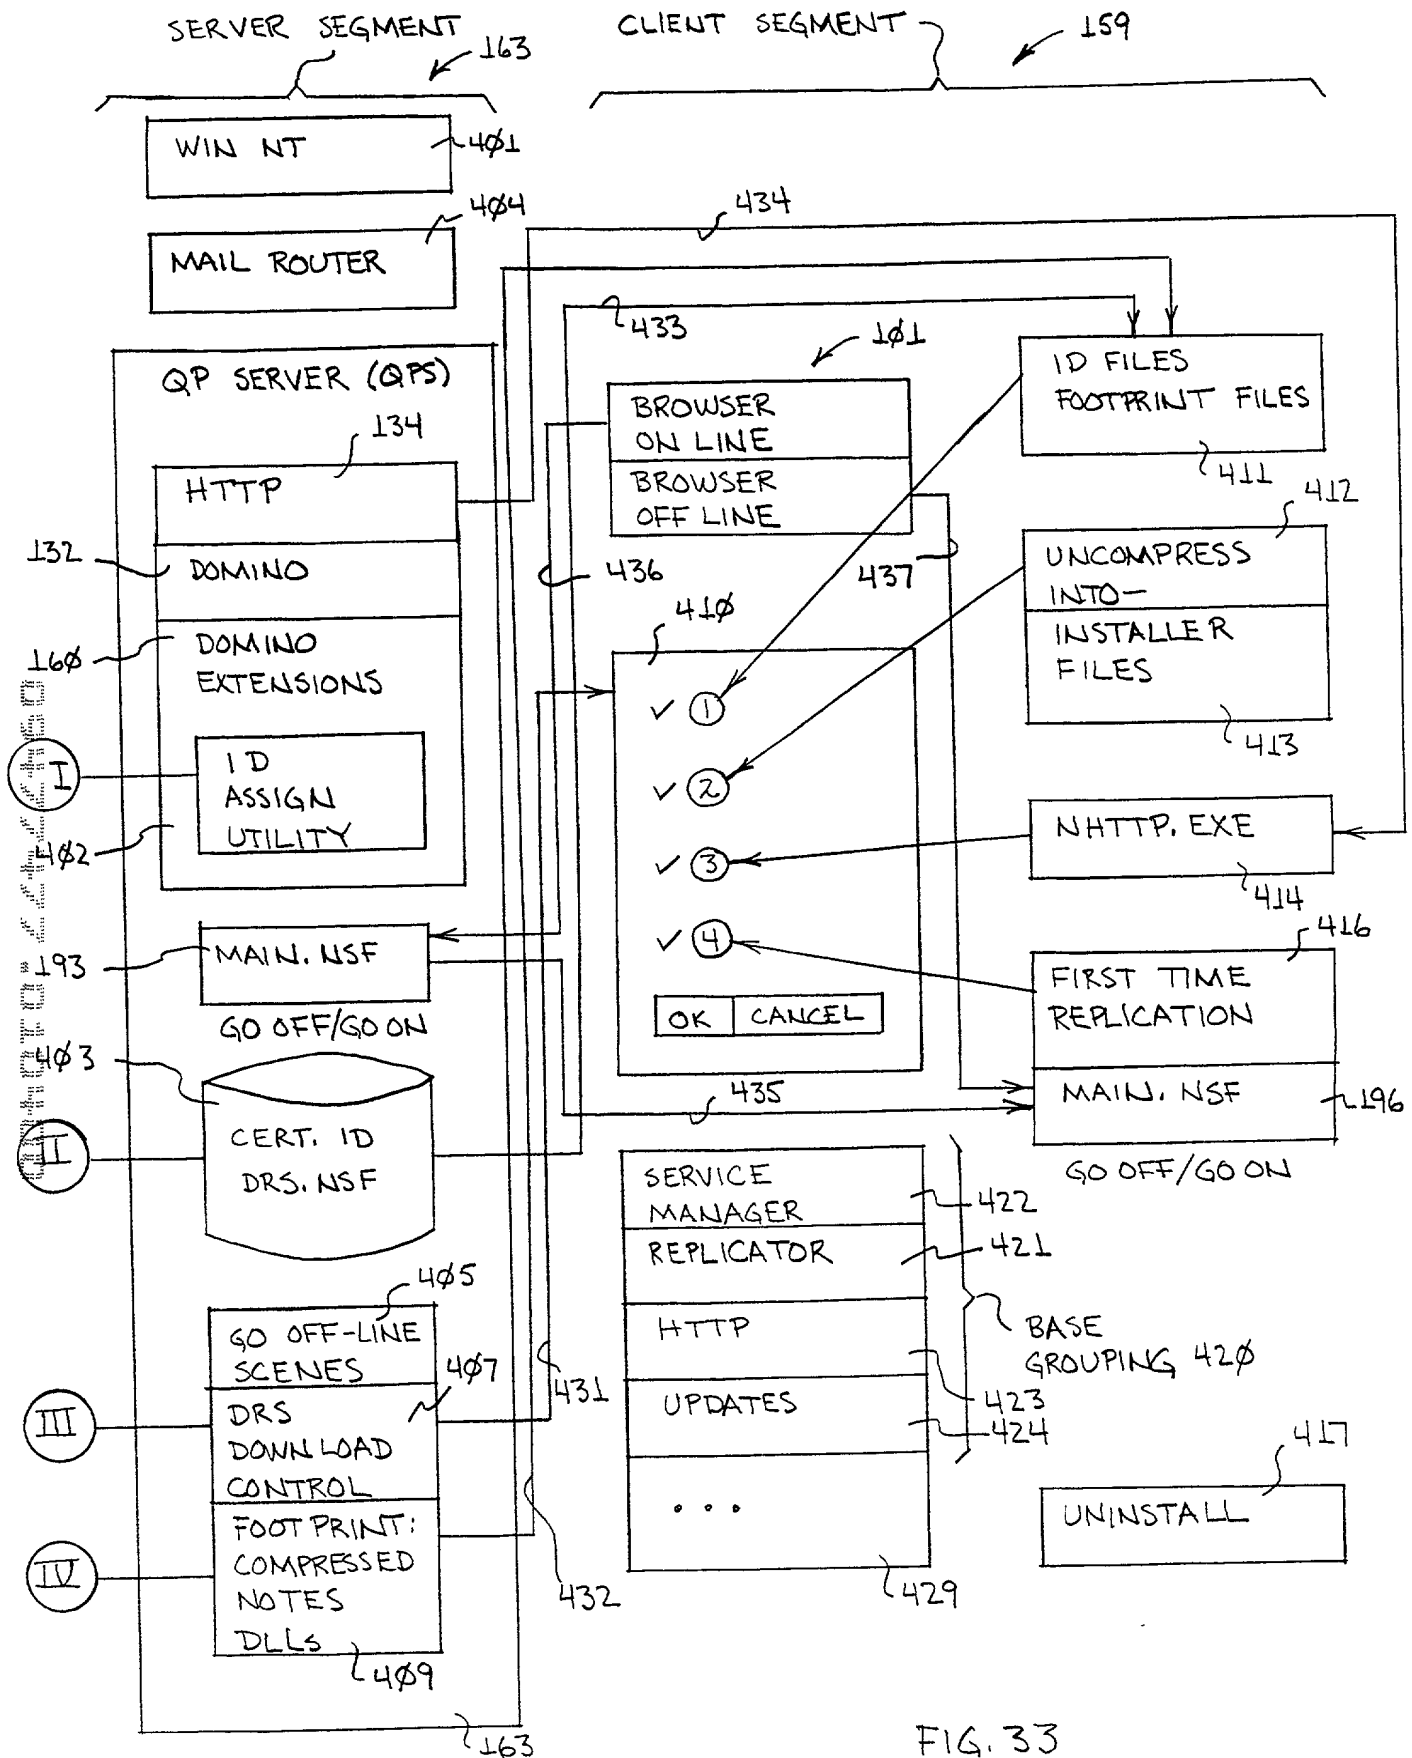 SERVER SEGMENT
163
CLIENT SEGMENT
159
WIN NT
4Ø1
MAIL ROUTER
4Ø4
434
433
QP SERVER (QPS)
134
HTTP
132
DOMINO
16Ø
DOMINO
EXTENSIONS
I
ID
ASSIGN
UTILITY
4Ø2
193
MAIN.NSF
GO OFF/GO ON
4Ø3
II
CERT. ID
DRS.NSF
4Ø5
GO OFF-LINE
SCENES
4Ø7
III
DRS
DOWNLOAD
CONTROL
IV
FOOTPRINT:
COMPRESSED
NOTES
DLLs
4Ø9
163
1Ø1
BROWSER
ON LINE
BROWSER
OFF LINE
436
437
41Ø
✓ 1
✓ 2
✓ 3
✓ 4
OK CANCEL
435
431
432
SERVICE
MANAGER
422
REPLICATOR
421
HTTP
423
UPDATES
424
...
429
BASE
GROUPING 42Ø
ID FILES
FOOTPRINT FILES
411
412
UNCOMPRESS
INTO—
INSTALLER
FILES
413
NHTTP.EXE
414
416
FIRST TIME
REPLICATION
MAIN.NSF
196
GO OFF/GO ON
417
UNINSTALL
FIG. 33